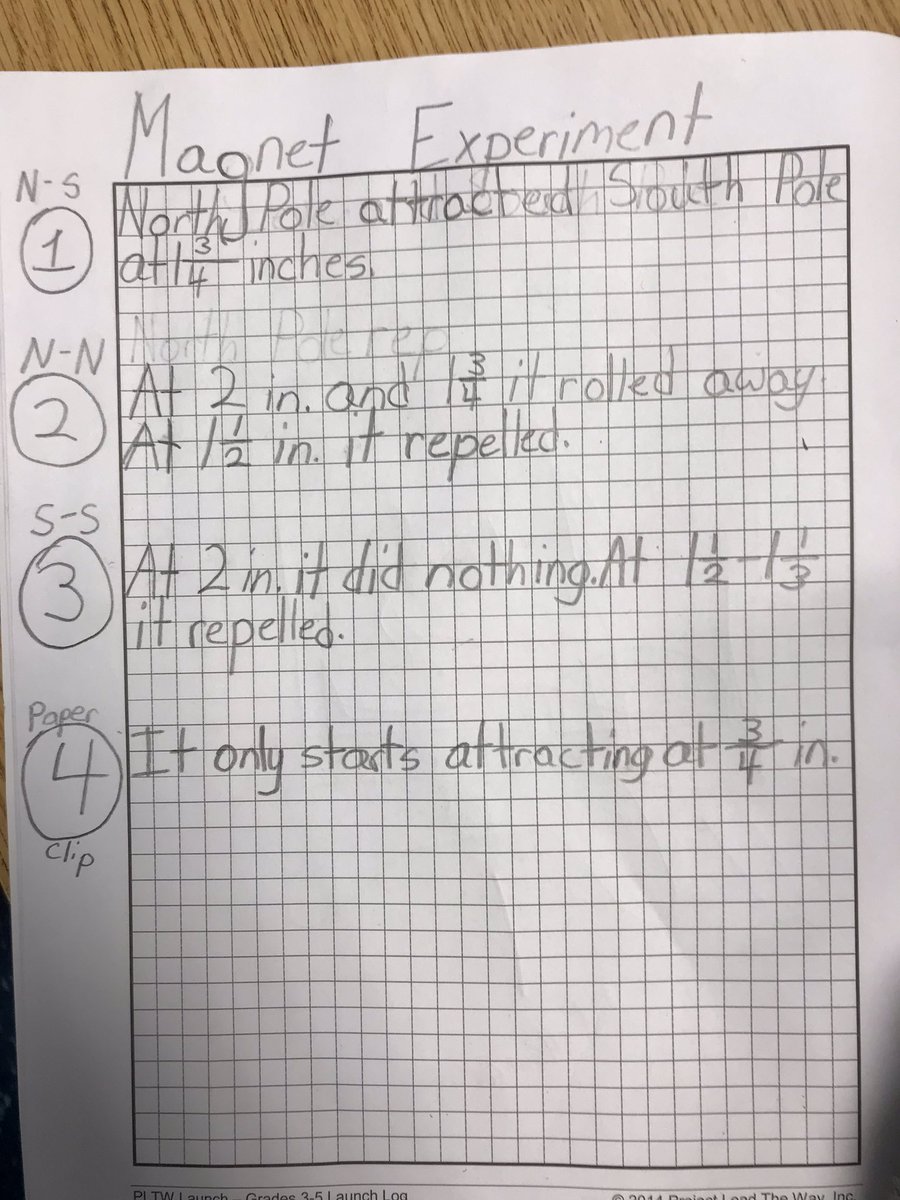 Magnet Experiment
N-S
1
North Pole attracted South Pole
at 1 3/4 inches.
North Pole rep
N-N
2
At 2 in. and 1 3/4 it rolled away.
At 1 1/2 in. it repelled.
S-S
3
At 2 in. it did nothing. At 1 1/2 - 1 1/3
it repelled.
Paper
4
Clip
It only starts attracting at 3/4 in.
PLTW Launch – Grades 3-5 Launch Log
© 2014 Project Lead The Way, Inc.